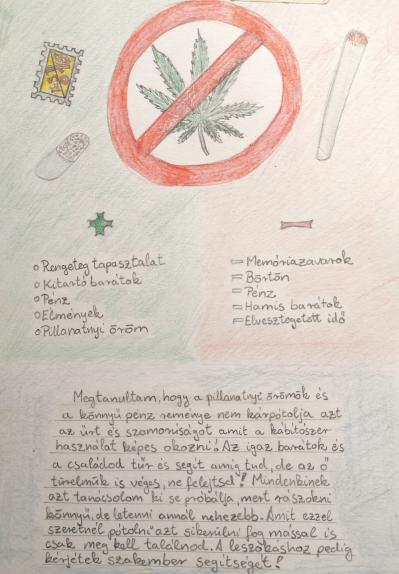 Rengeteg tapasztalat
Kitartó barátok
Pénz
Élmények
Pillanatnyi öröm
Memóriazavarok
Börtön
Pénz
Hamis barátok
Elvesztegetett idő
Megtanultam, hogy a pillanatnyi örömök és
a könnyű pénz reménye nem kárpótolja azt
az űrt és szomorúságot amit a kábítószer
használat képes okozni! Az igaz barátok és
a családod tűr és segít amíg tud, de az ő
türelmük is véges, ne felejtsd! Mindenkinek
azt tanácsolom ki se próbálja, mert rászokni
könnyű, de letenni annál nehezebb. Amit ezzel
szeretnél pótolni azt sikerülni fog mással is
csak meg kell találnod. A leszokáshoz pedig
kérjétek szakember segítségét!